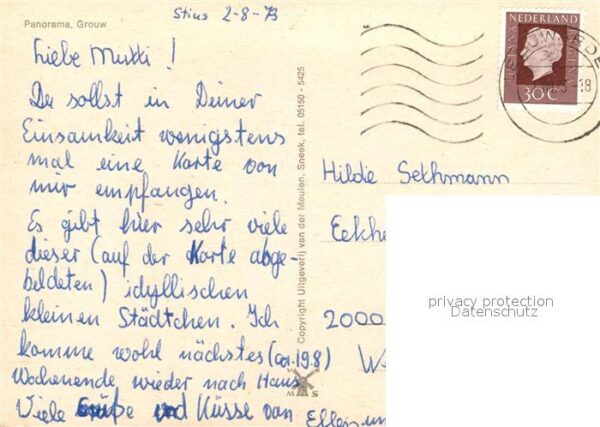 Stiens 2-8-73
Panorama, Grouw
Liebe Mutti!
Du sollst in Deiner
Einsamkeit wenigstens
mal eine Karte von
mir empfangen.
Es gibt hier sehr viele
dieser (auf der Karte abge-
bildeten) idyllischen
kleinen Städtchen. Ich
komme wohl nächstes (ca. 19.8)
Wochenende wieder nach Haus
Viele Grüße und Küsse von
Copyright Uitgeverij van der Meulen, Sneek, tel. 05150 - 5425
M S
NEDERLAND
30 C
18
Hilde Sethmann
2000
privacy protection
Datenschutz